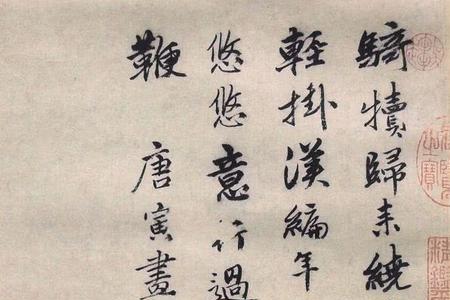 騎犢歸來繞
輕掛漢編年
悠悠意行過
鞭 唐寅畫